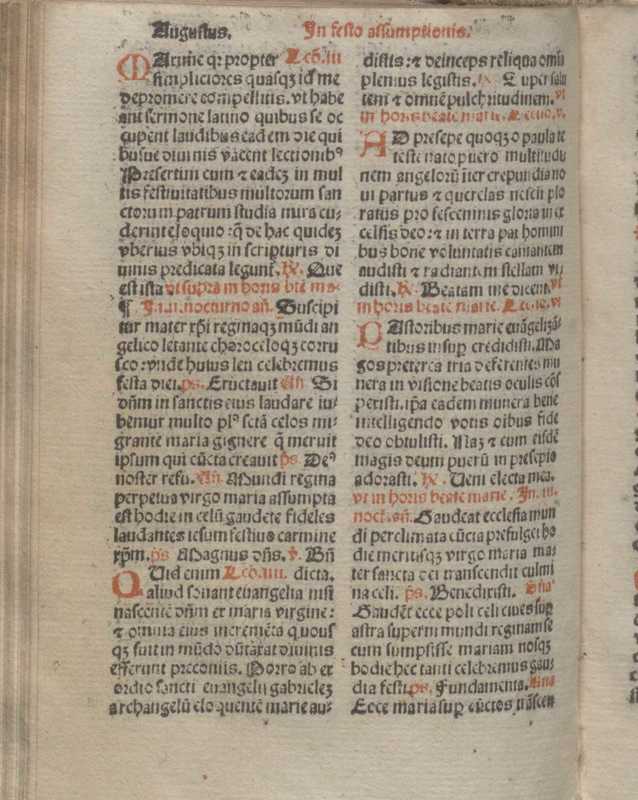 Augustus. In festo assumptionis.
MArime qr propter Lcō.iii
simpliciores quasqʒ id me
depromere compellitis. vt habe
ant sermone latino quibus se oc
cupent laudibus eadem die qui
busue diuinis vacent lectionibꝰ
Presertim cum ⁊ eadeʒ in mul
tis festiuitatibus multorum san
ctorum patrum studia mira cu-
derint eloquio: q̄ de hac quideʒ
vberius vbiqʒ in scripturis di
uinis predicata legunt̄. ℟. Que
est ista vt supra in horis bt̄e ma-
¶ In.ii.nocturno an̄. Suscipi
tur mater xp̄i reginaqʒ mūdi an
gelico letante choro celoqʒ corru
sco: vnde huius leti celebremus
festa diei. ps. Eructauit Añ. Si
dn̄m in sanctis eius laudare iu-
bemur multo plꝰ sctā celos mi-
grante maria gignere q̄ meruit
ipsum qui cūcta creauit ps Deꝰ
noster refu. Añ. Mundi regina
perpetua virgo maria assumpta
est hodie in celū gaudete fideles
laudantes iesum festius carmine
xp̄m. ps Magnus dn̄s. ℣. Bn̄
QUid enim Lcō.iiii. dicta.
aliud sonant euangelia nisi
nascentē dn̄m ex maria virgine:
⁊ omnia eius incremēta quous
qʒ fuit in mūdo dūtaxat diuinis
efferunt preconiis. Porro ab ex
ordio sancti euangelii gabrieleʒ
archangelū eloquentē marie au-
distis: ⁊ deinceps reliqua omīa
plenius legistis. ℟. Super salu
tem ⁊ omnē pulchritudinem. vt
in horis beate marie. Lectio.v.
AD presepe quoqʒ o paula te
teste nato puero multitudi
nem angelorū iter crepundia no
ui partus ⁊ querelas nescii plo
ratus pro fescemnis gloria in ex
celsis deo: ⁊ in terra pax homini
bus bone voluntatis cantantem
audisti ⁊ radiantem stellam vi-
disti. ℟. Beatam me dicent. vt
in horis beate marie. Lectio.vi
PAstoribus marie euāgelizā-
tibus insuꝑ credidisti. Ma
gos preterea tria deferentes mu
nera in visione beatis oculis cōs
pexisti. ip̄a eadem munera bene
intelligendo votis oibus fide
deo obtulisti. Naʒ ⁊ cum eisdē
magis deum puerū in presepio
adorasti. ℟. Ueni electa mea.
vt in horis beate marie. In.iii.
noct̄.añ. Gaudeat ecclesia mun
di per climata cūcta prefulget ho
die meritisqʒ virgo maria ma-
ter sancta dei transcendit culmi
na celi. ps. Benedixisti. Aña
Gaudēt ecce poli celi ciues suꝑ
astra superni mundi reginam se
cum sumpsisse mariam nosqʒ
hodie hec tanti celebremus gau-
dia festi. ps. Fundamenta. Aña
Ecce maria suꝑ cūctos trāscen